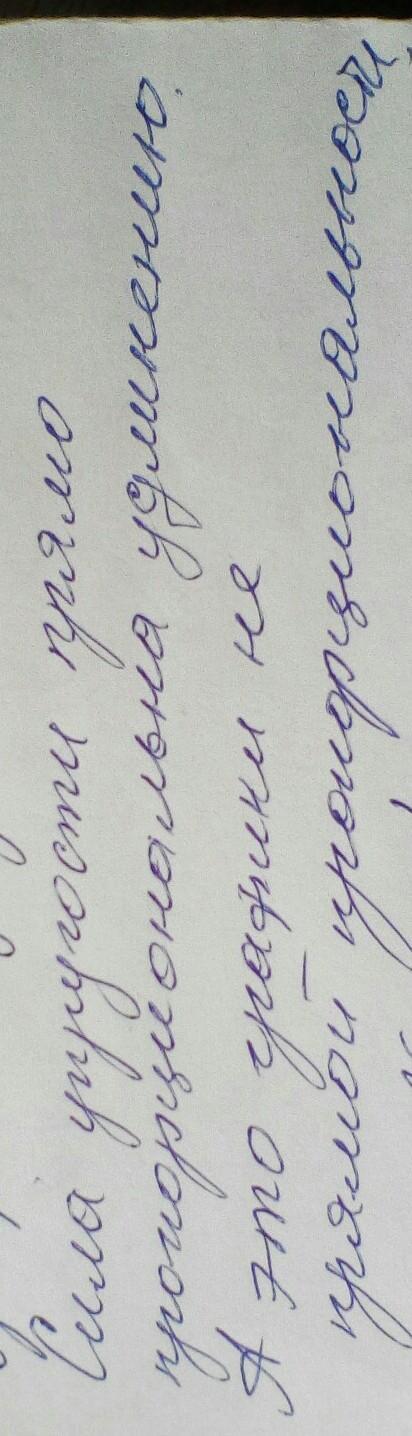 Сила упругости прямо
пропорциональна удлинению.
А это графики не
прямой пропорциональности